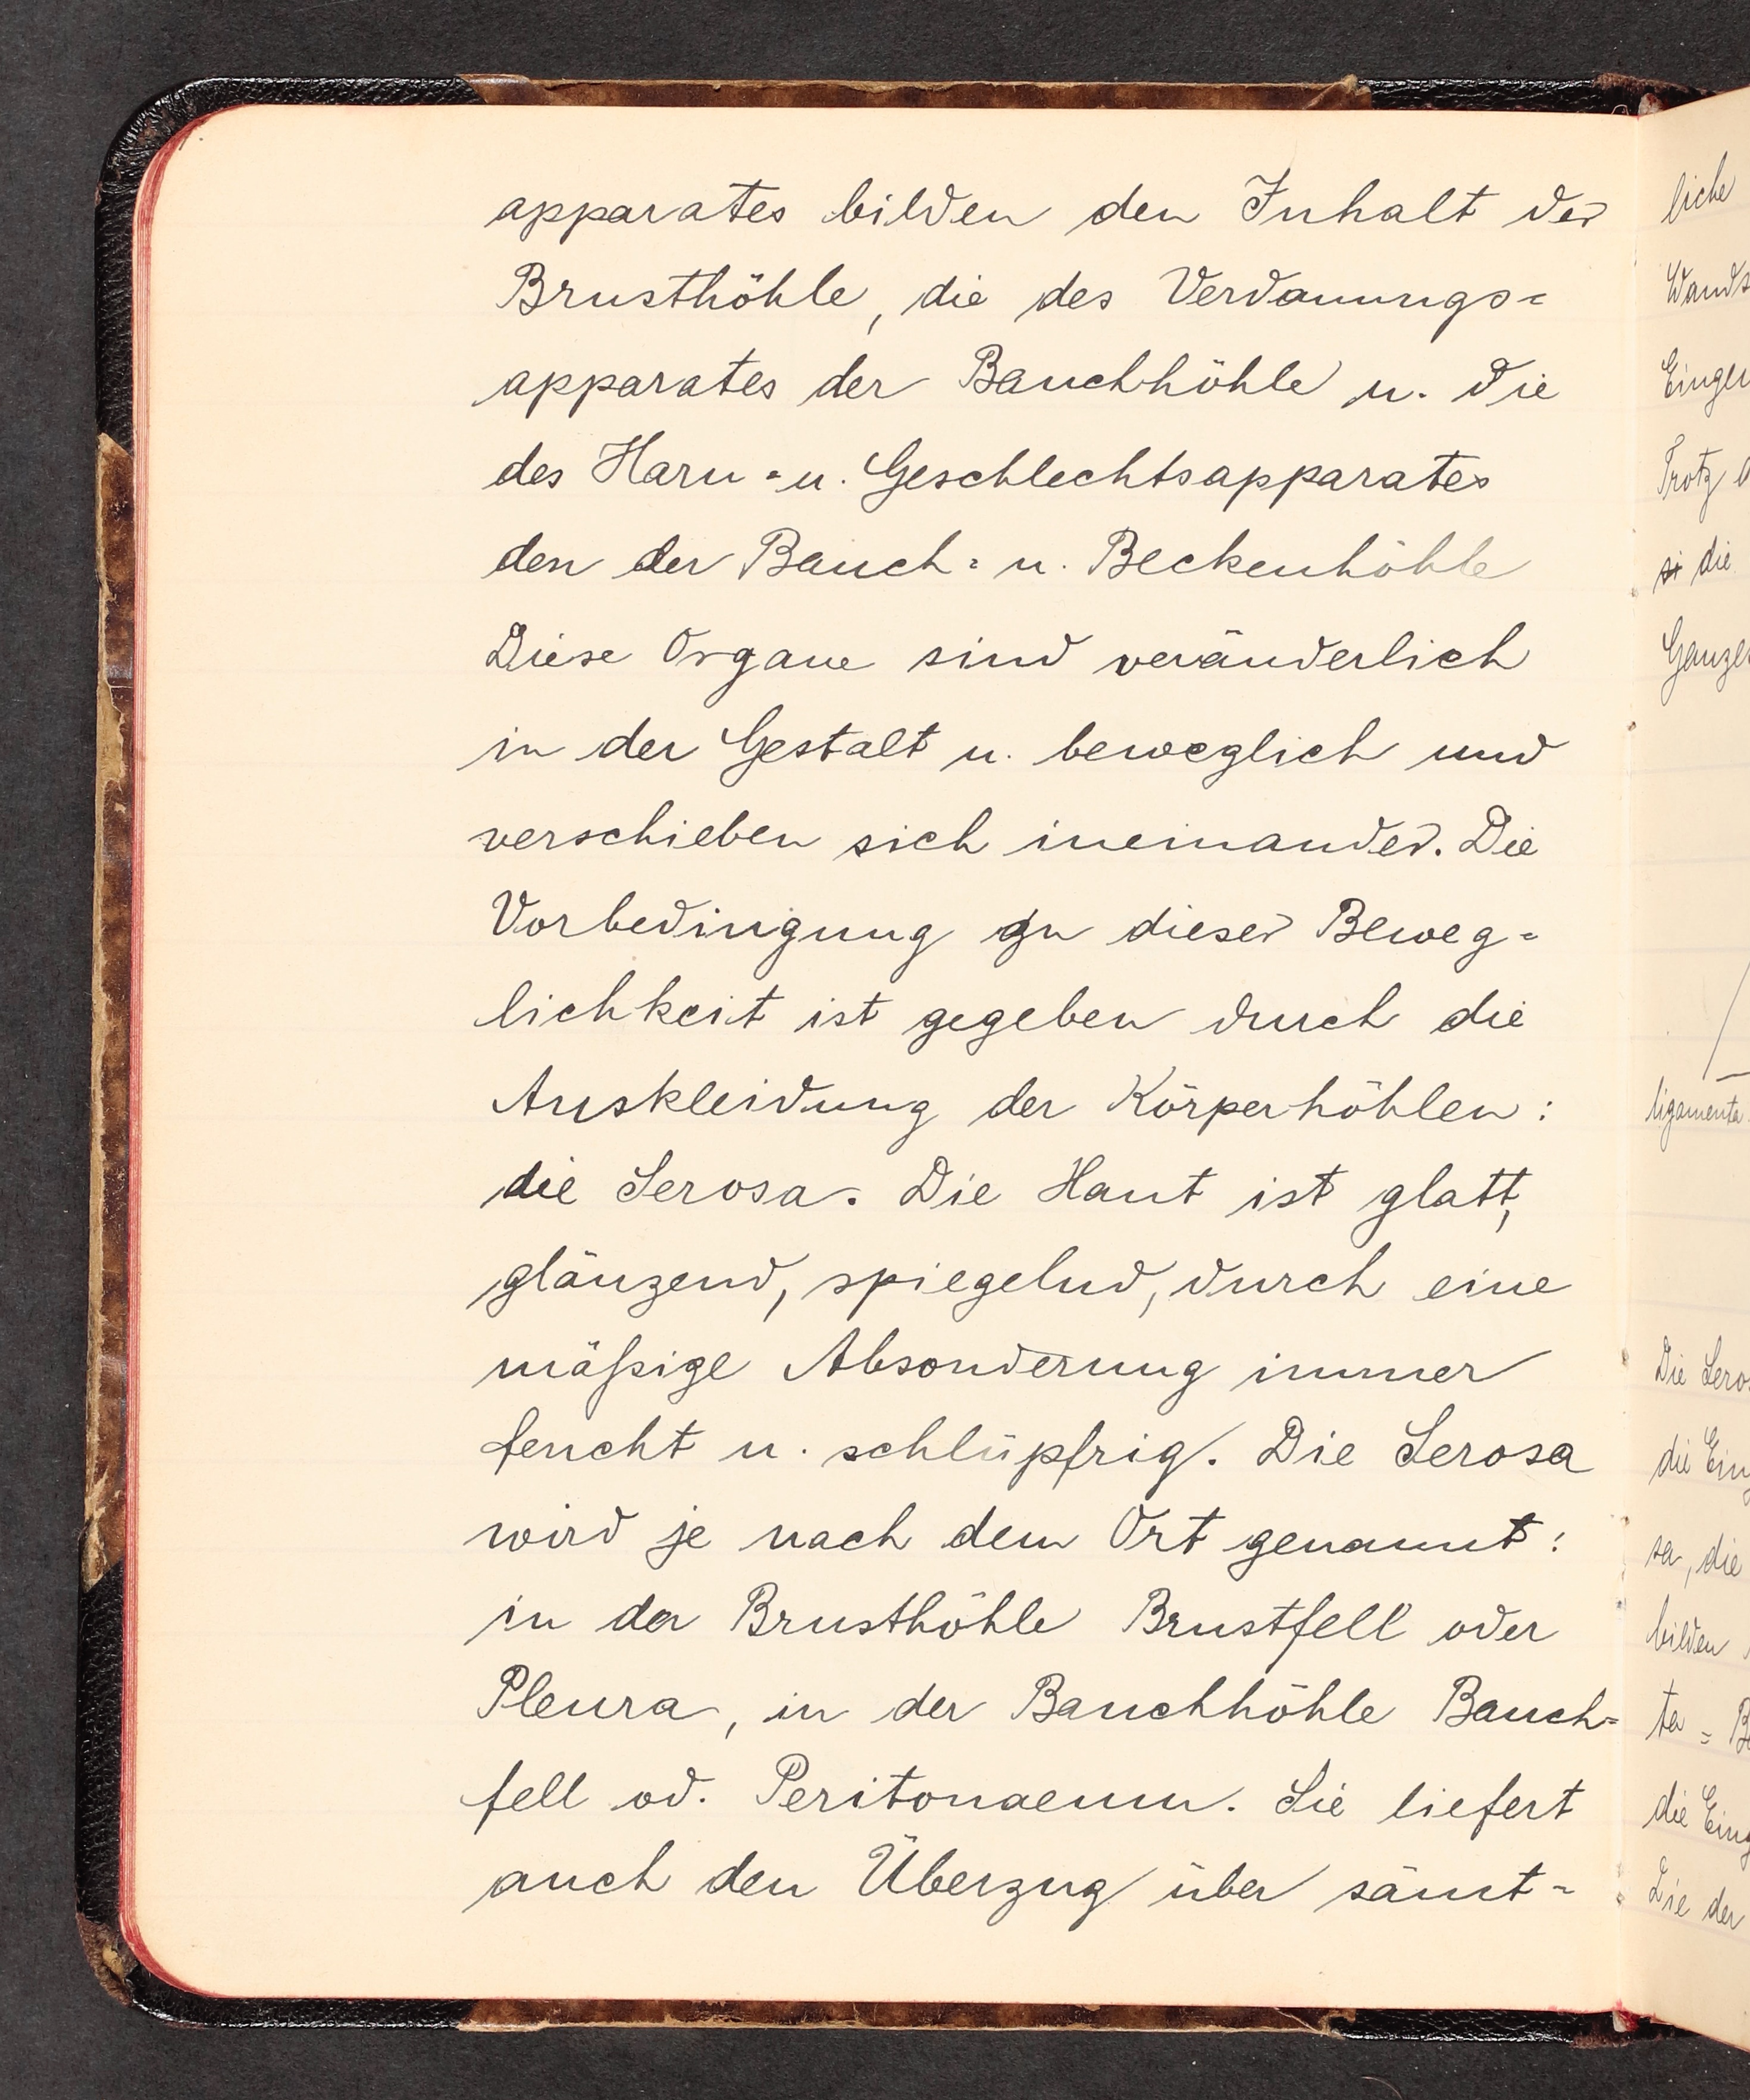 apparates bilden den Inhalt der
Brusthöhle, die des Verdauungs=
apparates der Bauchhöhle u. die
des Harn= u. Geschlechtsapparates
den der Bauch= u. Beckenhöhle
Diese Organe sind veränderlich
in der Gestalt u. beweglich und
verschieben sich ineinander. Die
Vorbedingung zu dieser Beweg=
lichkeit ist gegeben durch die
Auskleidung der Körperhöhlen:
die Serosa. Die Haut ist glatt,
glänzend, spiegelnd, durch eine
mäßige Absonderung immer
feucht u. schlüpfrig. Die Serosa
wird je nach dem Ort genannt:
in der Brusthöhle Brustfell oder
Pleura, in der Bauchhöhle Bauch=
fell od. Peritonaeum. Sie liefert
auch den Überzug über sämt=
liche
Trotz
die
ligamenta
Die
die
sa, die
bilden
ta =
die
der